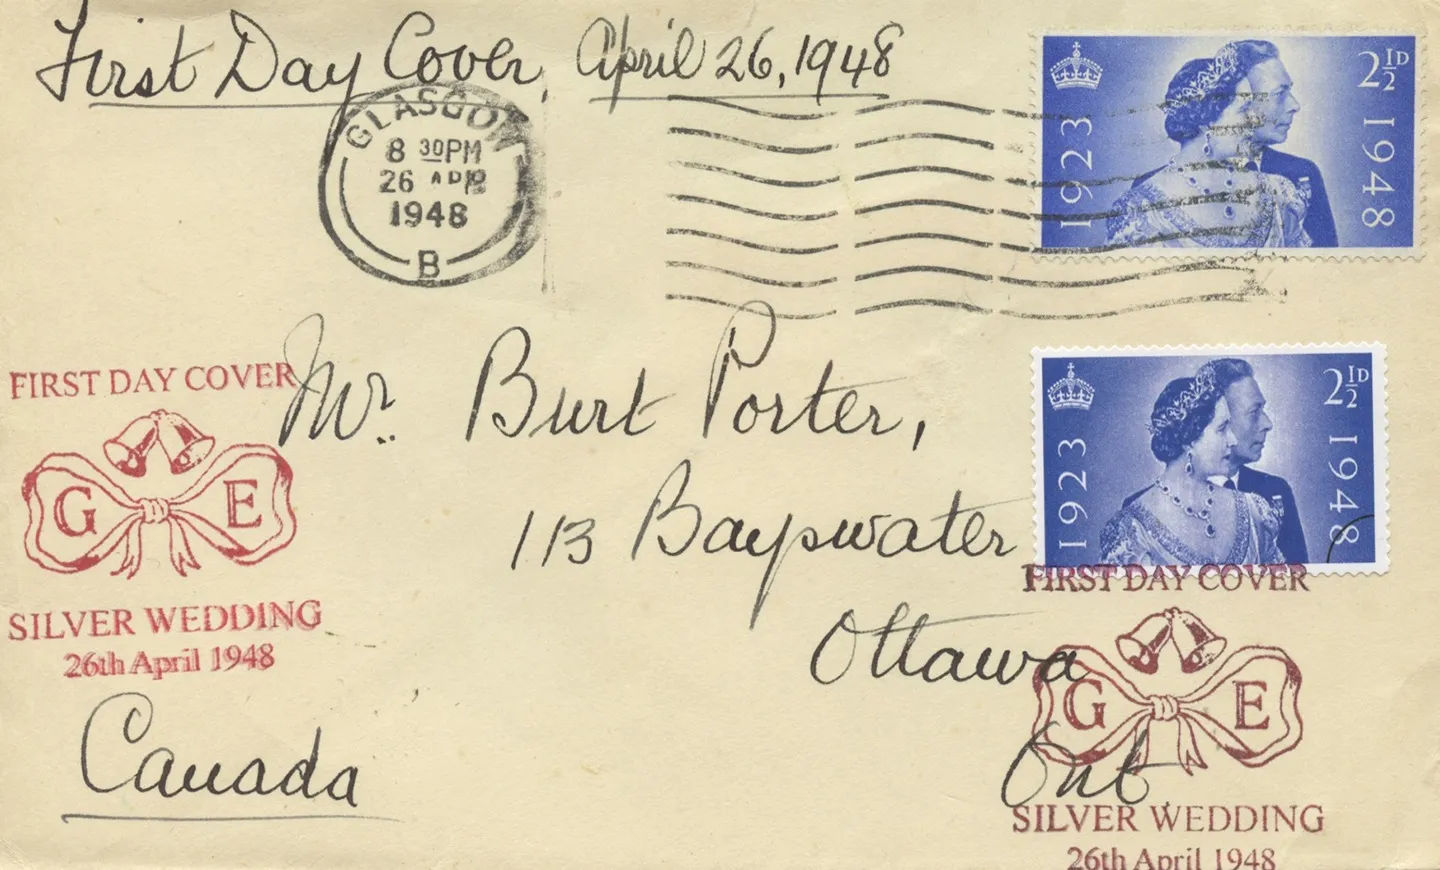 First Day Cover, April 26, 1948
GLASGOW
8 30PM
26 APR
1948
B
1923
2½D
1948
FIRST DAY COVER
G E
SILVER WEDDING
26th April 1948
Mr. Burt Porter,
113 Baypwater
Ottawa
Ont.
Canada
1923
2½D
1948
FIRST DAY COVER
G E
SILVER WEDDING
26th April 1948